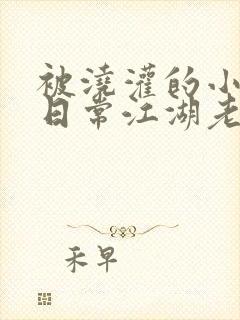 被澆灌的小
日常江湖老
禾早